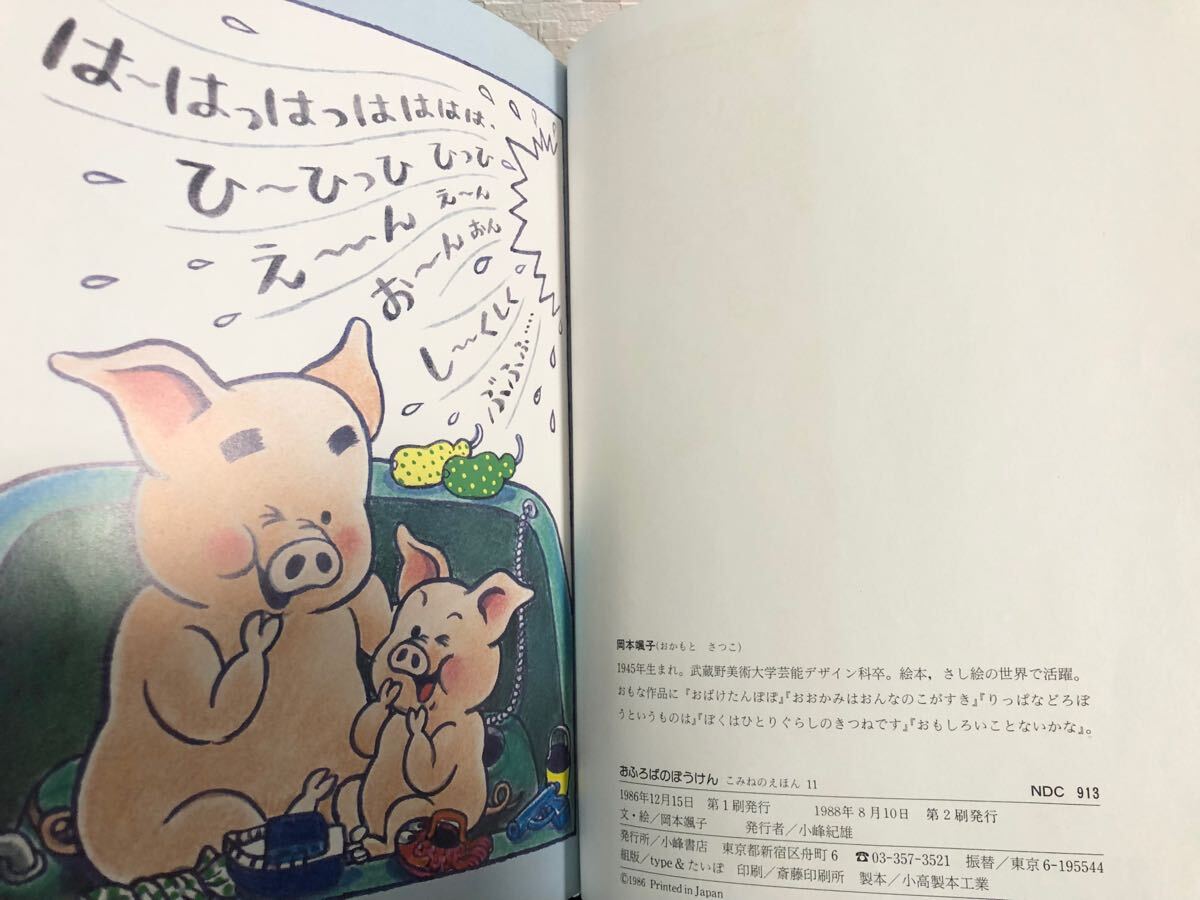 は〜はっはっはははは、
ひ〜ひっひ ひっひ
え〜〜ん え〜ん
お〜ん おん
し〜くしく
ぶふふふ……
岡本颯子(おかもと さつこ)
1945年生まれ。武蔵野美術大学芸能デザイン科卒。絵本，さし絵の世界で活躍。
おもな作品に『おばけたんぽぽ』『おおかみはおんなのこがすき』『りっぱなどろぼ
うというものは』『ぼくはひとりぐらしのきつねです』『おもしろいことないかな』。
おふろばのぼうけん こみねのえほん 11 NDC 913
1986年12月15日 第1刷発行 1988年8月10日 第2刷発行
文・絵／岡本颯子 発行者／小峰紀雄
発行所／小峰書店 東京都新宿区舟町6 ☎03-357-3521 振替／東京6-195544
組版／type＆たいぽ 印刷／斎藤印刷所 製本／小高製本工業
©1986 Printed in Japan